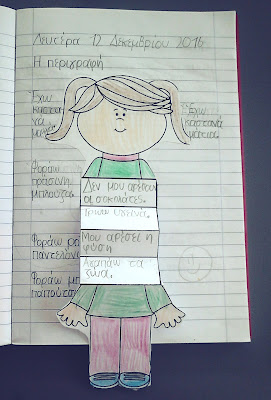 Δευτέρα 12 Δεκεμβρίου 2016
Η περιγραφή
Έχω
καστα
νά
μαλλ
Έχω
καστανά
μάτια.
Φοράω
πράσινη
μπλούζα.
Δεν μου αρέσουν
οι
Τρώω υγιεινά.
Μου αρέσει η
φύση
Αγαπάω τα
ζώα.
Φοράω ρο
παντελόνι
Φοράω μπ
παπούτσ